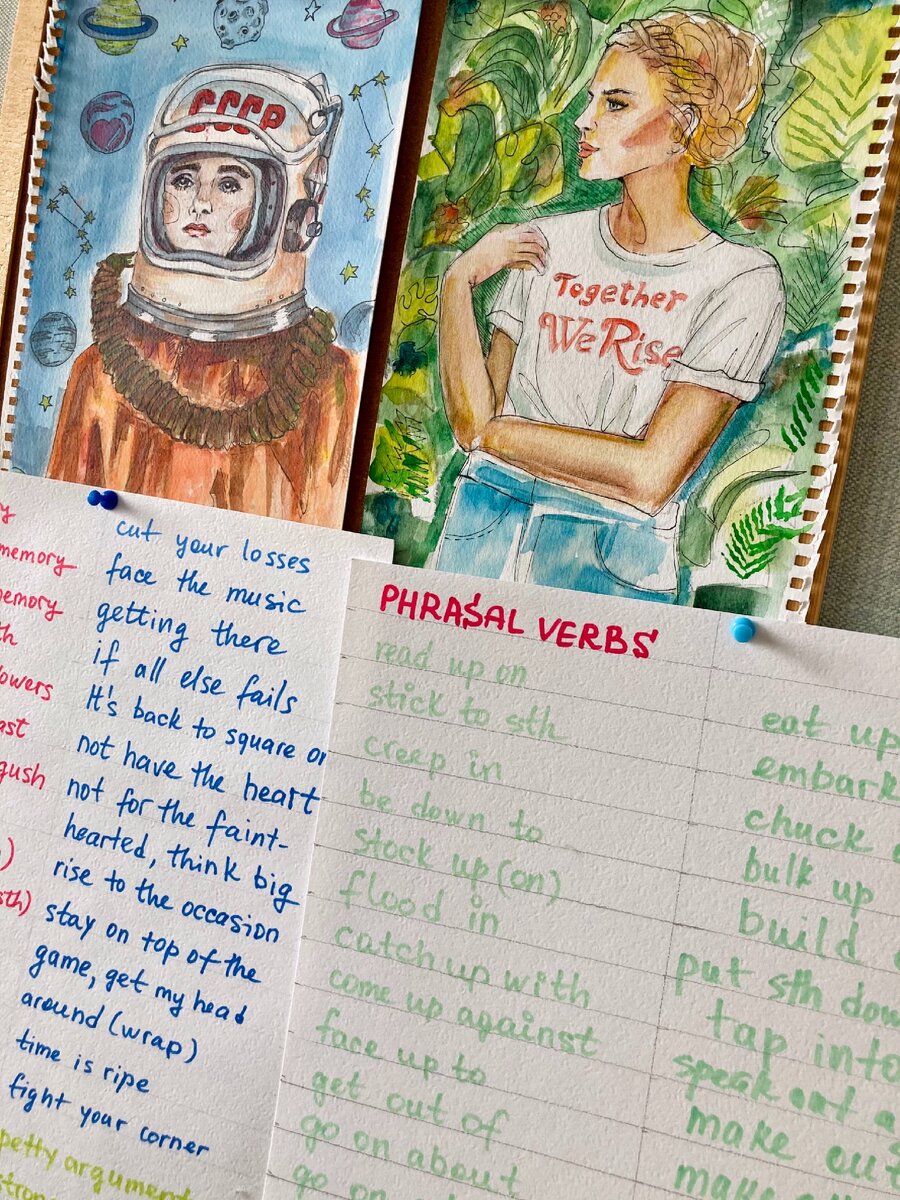 СССР
Together
We Rise
memory
memory
cut your losses
face the music
getting there
if all else fails
It's back to square
not have the heart
not for the faint-
hearted, think big
rise to the occasion
stay on top of the
game, get my head
around (wrap)
time is ripe
fight your corner
petty argument
PHRASAL VERBS
read up on
stick to sth
creep in
be down to
stock up (on)
flood in
catch up with
come up against
face up to
get out of
go on about
go on
eat up
embark
chuck
bulk up
build
put sth down
tap into
speak out
make out